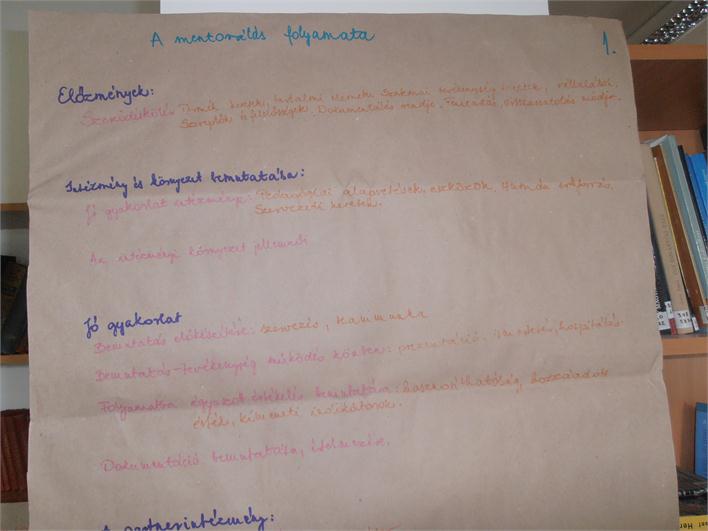 A mentorálás folyamata
1.
Előzmények:
Szerződéskötés
keretek, tartalmi elemek. Szakmai tevékenység keretek, vállalásai,
Szereplők és felelősségek. Dokumentálás módja. Finanszí, módja.
Intézmény és környezet bemutatása:
Jó gyakorlat intézménye: Pedagógiai alapvetések, eszközök, Humán erőforrás,
Szervezeti keretek.
Az intézményi környezet jellemzői
Jó gyakorlat
Bemutatás előkészítése: szervezés, teammunka
Bemutatás-tevékenység működés közben: prezentáció, hospitálás
Folyamatba ágyazott értékelés bemutatása: hasznosíthatóság, hozzáadott
érték, kimeneti indikátorok.
Dokumentáció bemutatása, értelmezése.
A partnerintézmény: